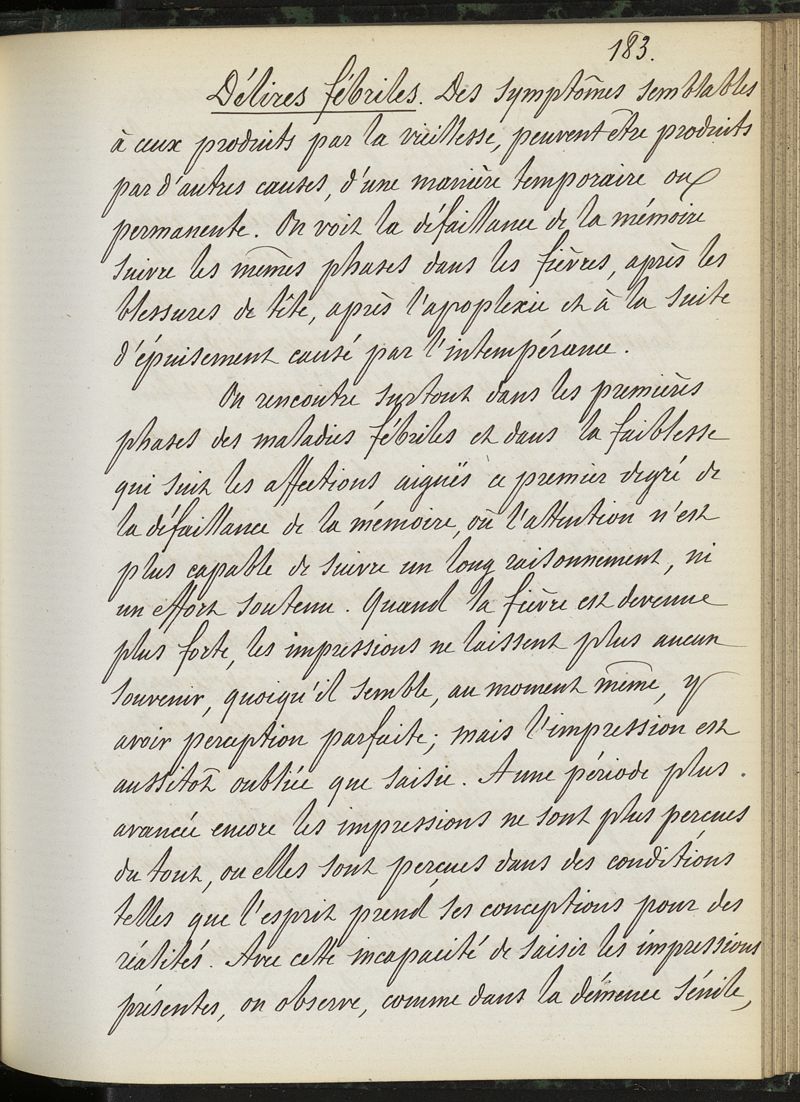 183.
Délires fébriles. Des symptômes semblables
à ceux produits par la vieillesse, peuvent être produits
par d'autres causes, d'une manière temporaire ou
permanente. On voit la défaillance de la mémoire
suivre les mêmes phases dans les fièvres, après les
blessures de tête, après l'apoplexie et à la suite
d'épuisement causé par l'intempérance.
On rencontre surtout dans les premières
phases des maladies fébriles et dans la faiblesse
qui suit les affections aiguës ce premier degré de
la défaillance de la mémoire, où l'attention n'est
plus capable de suivre un long raisonnement, ni
un effort soutenu. Quand la fièvre est devenue
plus forte, les impressions ne laissent plus aucun
souvenir, quoiqu'il semble, au moment même, y
avoir perception parfaite; mais l'impression est
aussitôt oubliée que saisie. A une période plus
avancée encore les impressions ne sont plus perçues
du tout, ou elles sont perçues dans des conditions
telles que l'esprit prend ses conceptions pour des
réalités. Avec cette incapacité de saisir les impressions
présentes, on observe, comme dans la démence sénile,